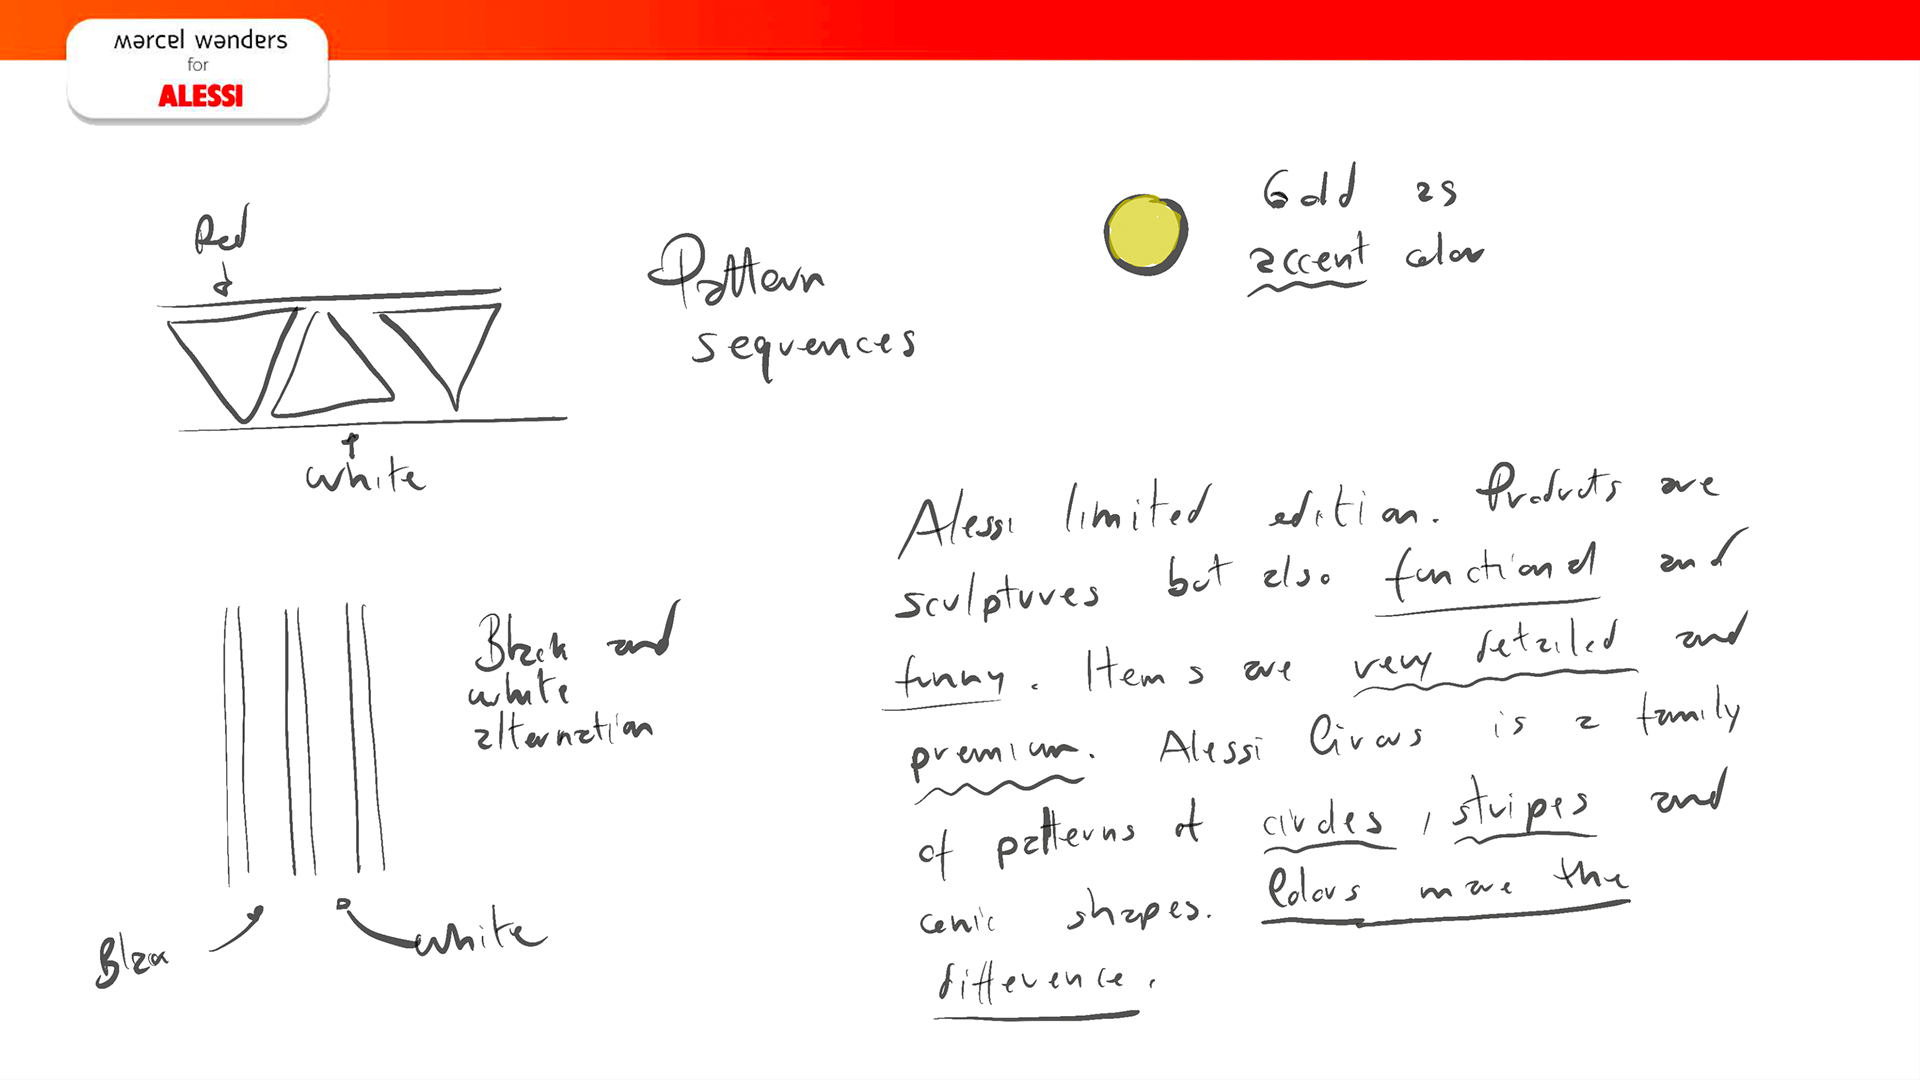 marcel wanders
for
ALESSI
Red
white
Pattern
sequences
Gold as
accent color
Black and
white
alternation
white
Alessi limited edition. Products are
sculptures but also functional and
funny. Items are very detailed and
premium. Alessi Circus is a family
of patterns of circles, stripes and
conic shapes. Colors make the
difference.